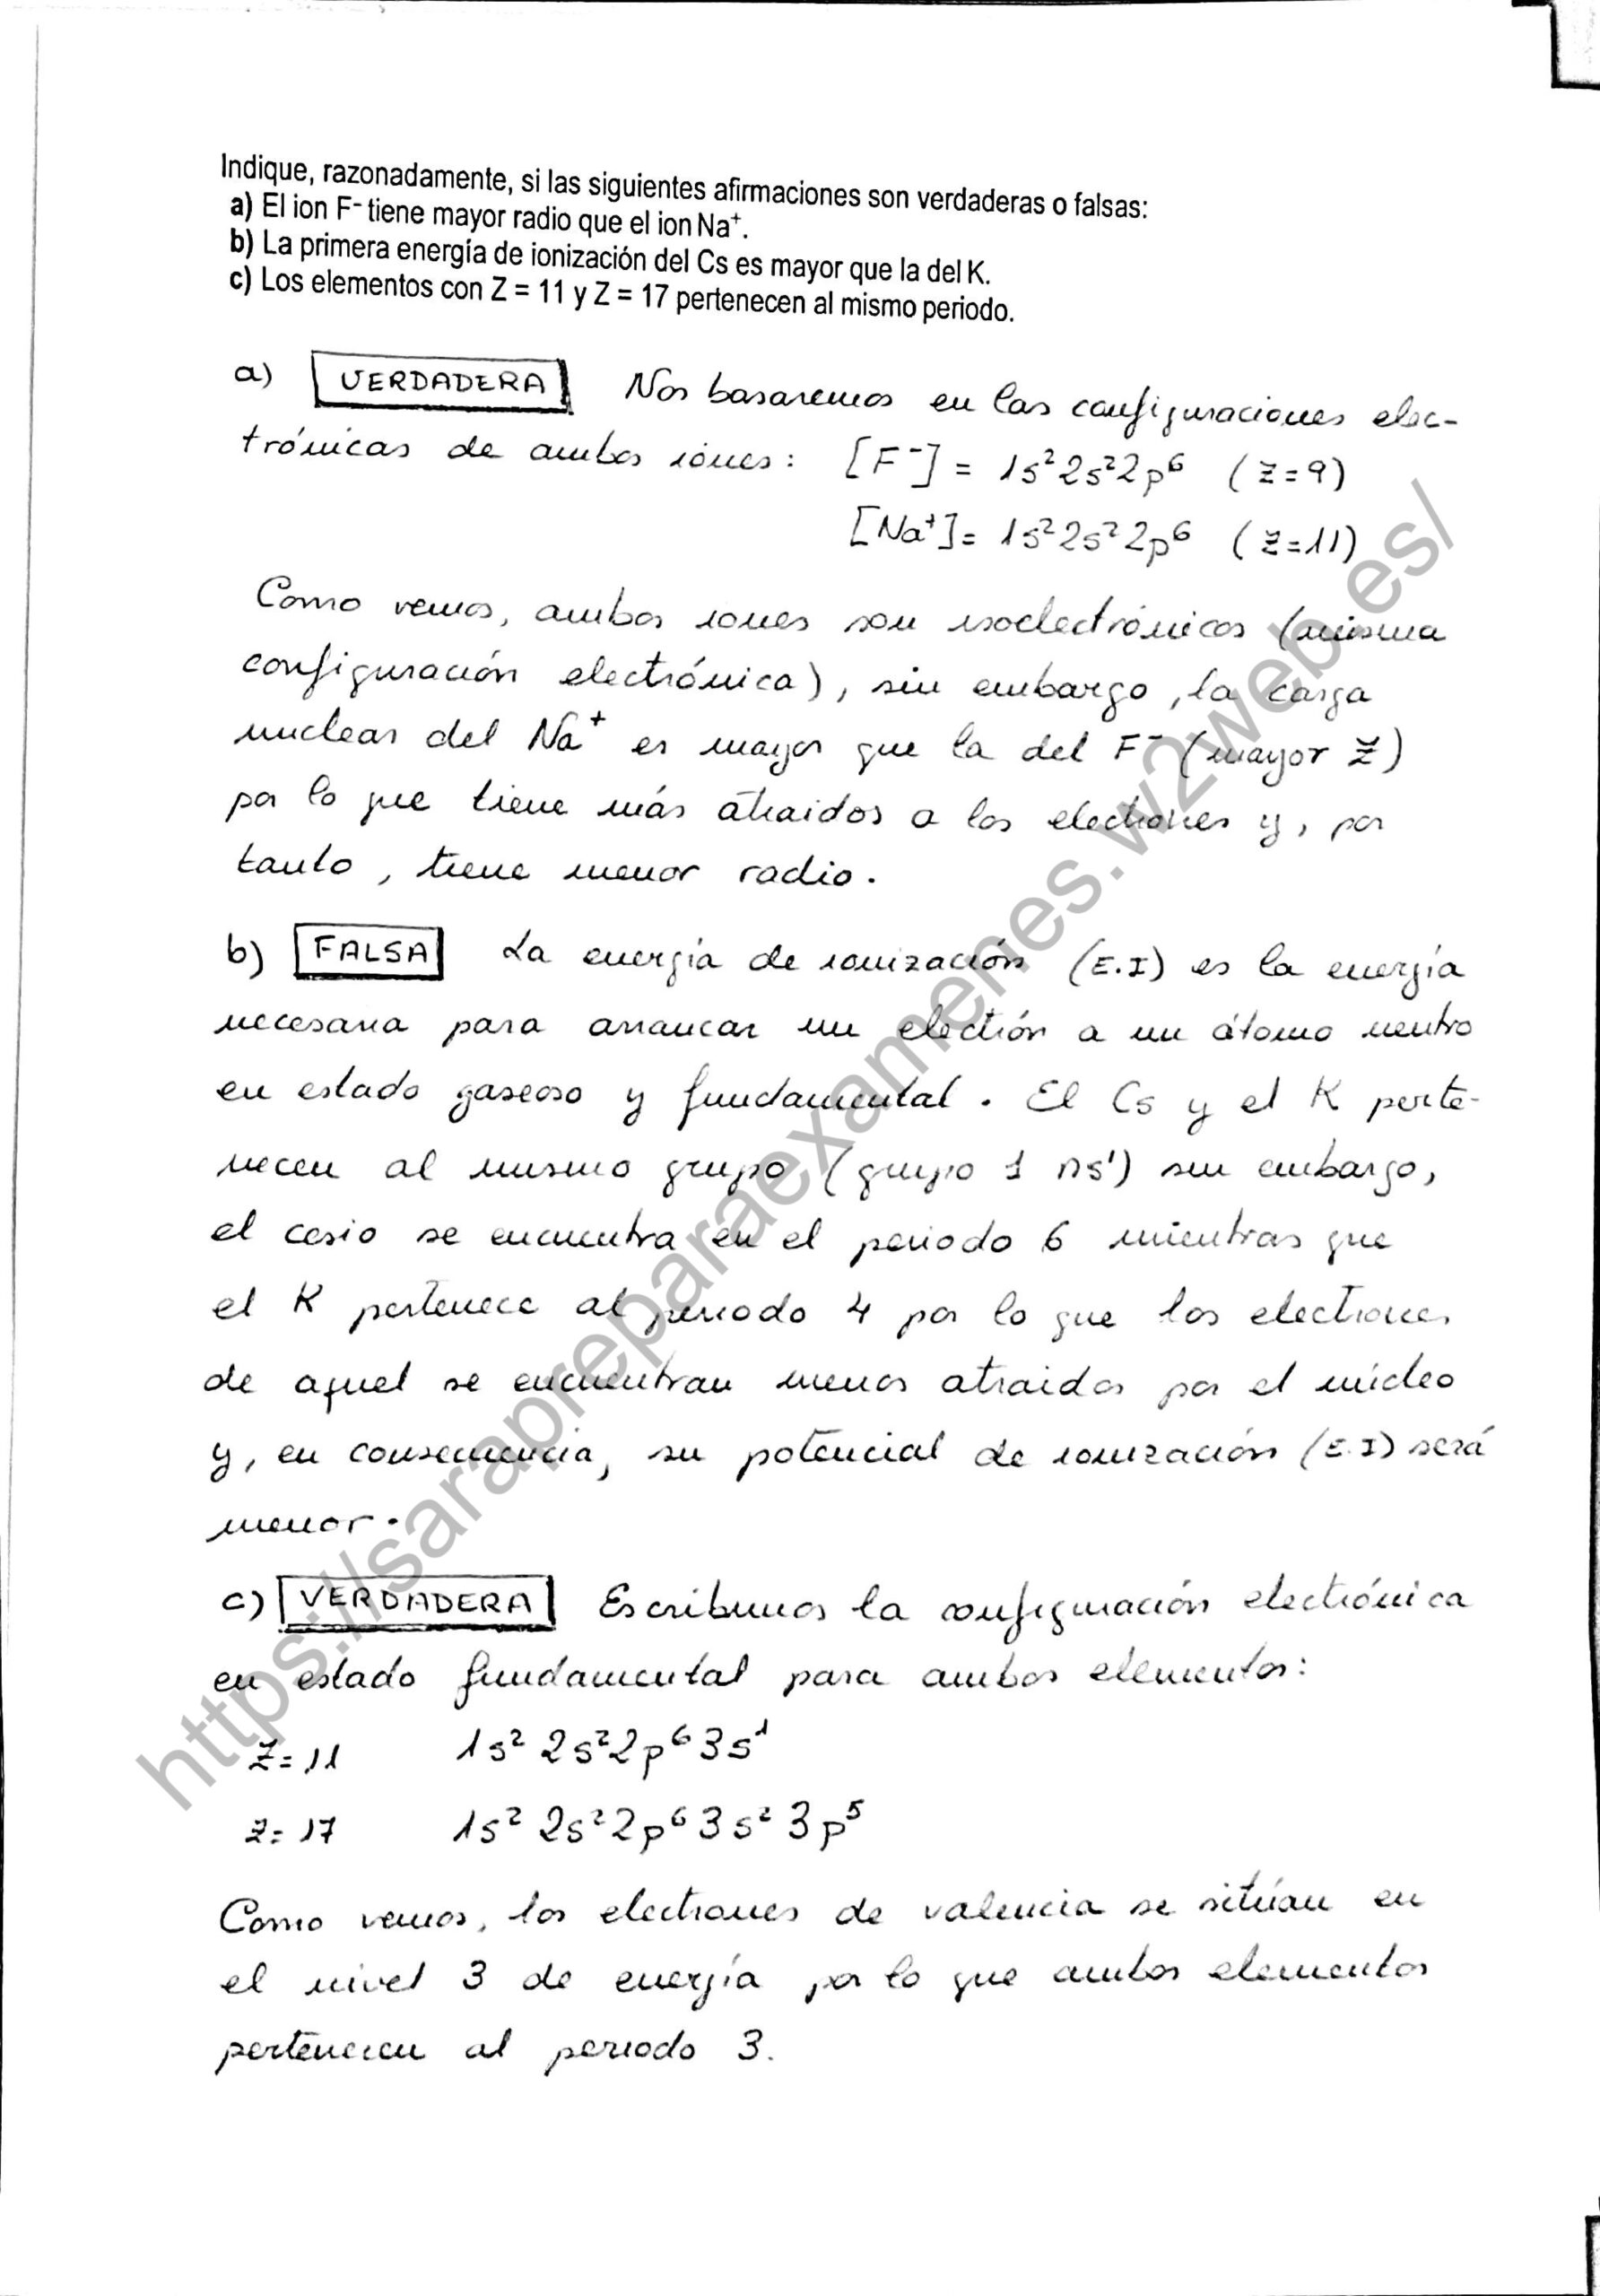 Indique, razonadamente, si las siguientes afirmaciones son verdaderas o falsas:
a) El ion F⁻ tiene mayor radio que el ion Na⁺.
b) La primera energía de ionización del Cs es mayor que la del K.
c) Los elementos con Z = 11 y Z = 17 pertenecen al mismo periodo.
a) VERDADERA Nos basaremos en las configuraciones elec-
trónicas de ambos iones: [F⁻] = 1s² 2s² 2p⁶ (Z=9)
[Na⁺] = 1s² 2s² 2p⁶ (Z=11)
Como vemos, ambos iones son isoelectrónicos (misma
configuración electrónica), sin embargo, la carga
nuclear del Na⁺ es mayor que la del F⁻ (mayor Z)
por lo que tiene más atraidos a los electrones y, por
tanto, tiene menor radio.
b) FALSA La energía de ionización (E.I) es la energía
necesaria para arrancar un electrón a un átomo neutro
en estado gaseoso y fundamental. El Cs y el K perte-
necen al mismo grupo (grupo 1 ns¹) sin embargo,
el cesio se encuentra en el periodo 6 mientras que
el K pertenece al periodo 4 por lo que los electrones
de aquel se encuentran menos atraidos por el núcleo
y, en consecuencia, su potencial de ionización (E.I) será
menor.
c) VERDADERA Escribimos la configuración electrónica
en estado fundamental para ambos elementos:
Z=11 1s² 2s² 2p⁶ 3s¹
Z=17 1s² 2s² 2p⁶ 3s² 3p⁵
Como vemos, los electrones de valencia se sitúan en
el nivel 3 de energía por lo que ambos elementos
pertenecen al periodo 3.
https://saraprepararaexamenes.w2web.es/